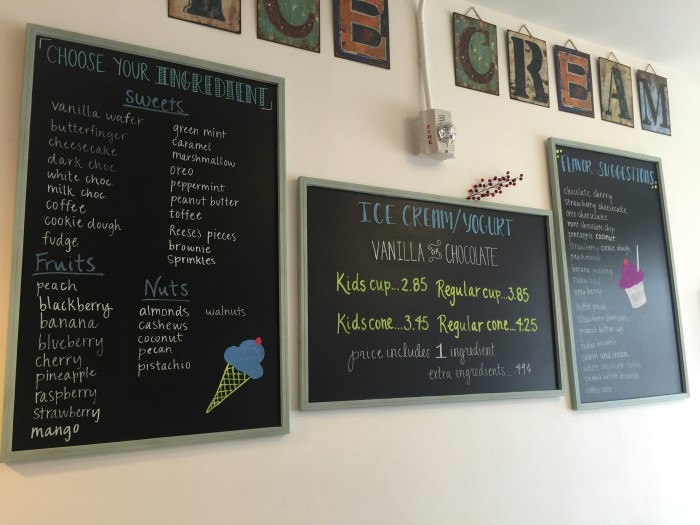 ICE CREAM
CHOOSE YOUR INGREDIENT
SWEETS
vanilla wafer
butterfinger
cheesecake
dark choc
white choc.
milk choc.
coffee
cookie dough
fudge
green mint
caramel
marshmallow
oreo
peppermint
peanut butter
toffee
Reese's pieces
brownie
sprinkles
Fruits
peach
blackberry
banana
blueberry
cherry
pineapple
raspberry
strawberry
mango
Nuts
almonds
cashews
coconut
pecan
pistachio
walnuts
FIRE
ICE CREAM/YOGURT
VANILLA OR CHOCOLATE
Kids cup...2.85
Regular cup...3.85
Kids cone...3.45
Regular cone...4.25
price includes 1 ingredient
extra ingredients... 49¢
FLAVOR SUGGESTIONS
chocolate cherry
strawberry cheesecake
oreo cheesecake
mint chocolate chip
pineapple coconut
strawberry cookie dough
banana pudding
butter pecan
strawberry shortcake
peanut butter cup
fudge brownie
cookies and cream
coffee cake